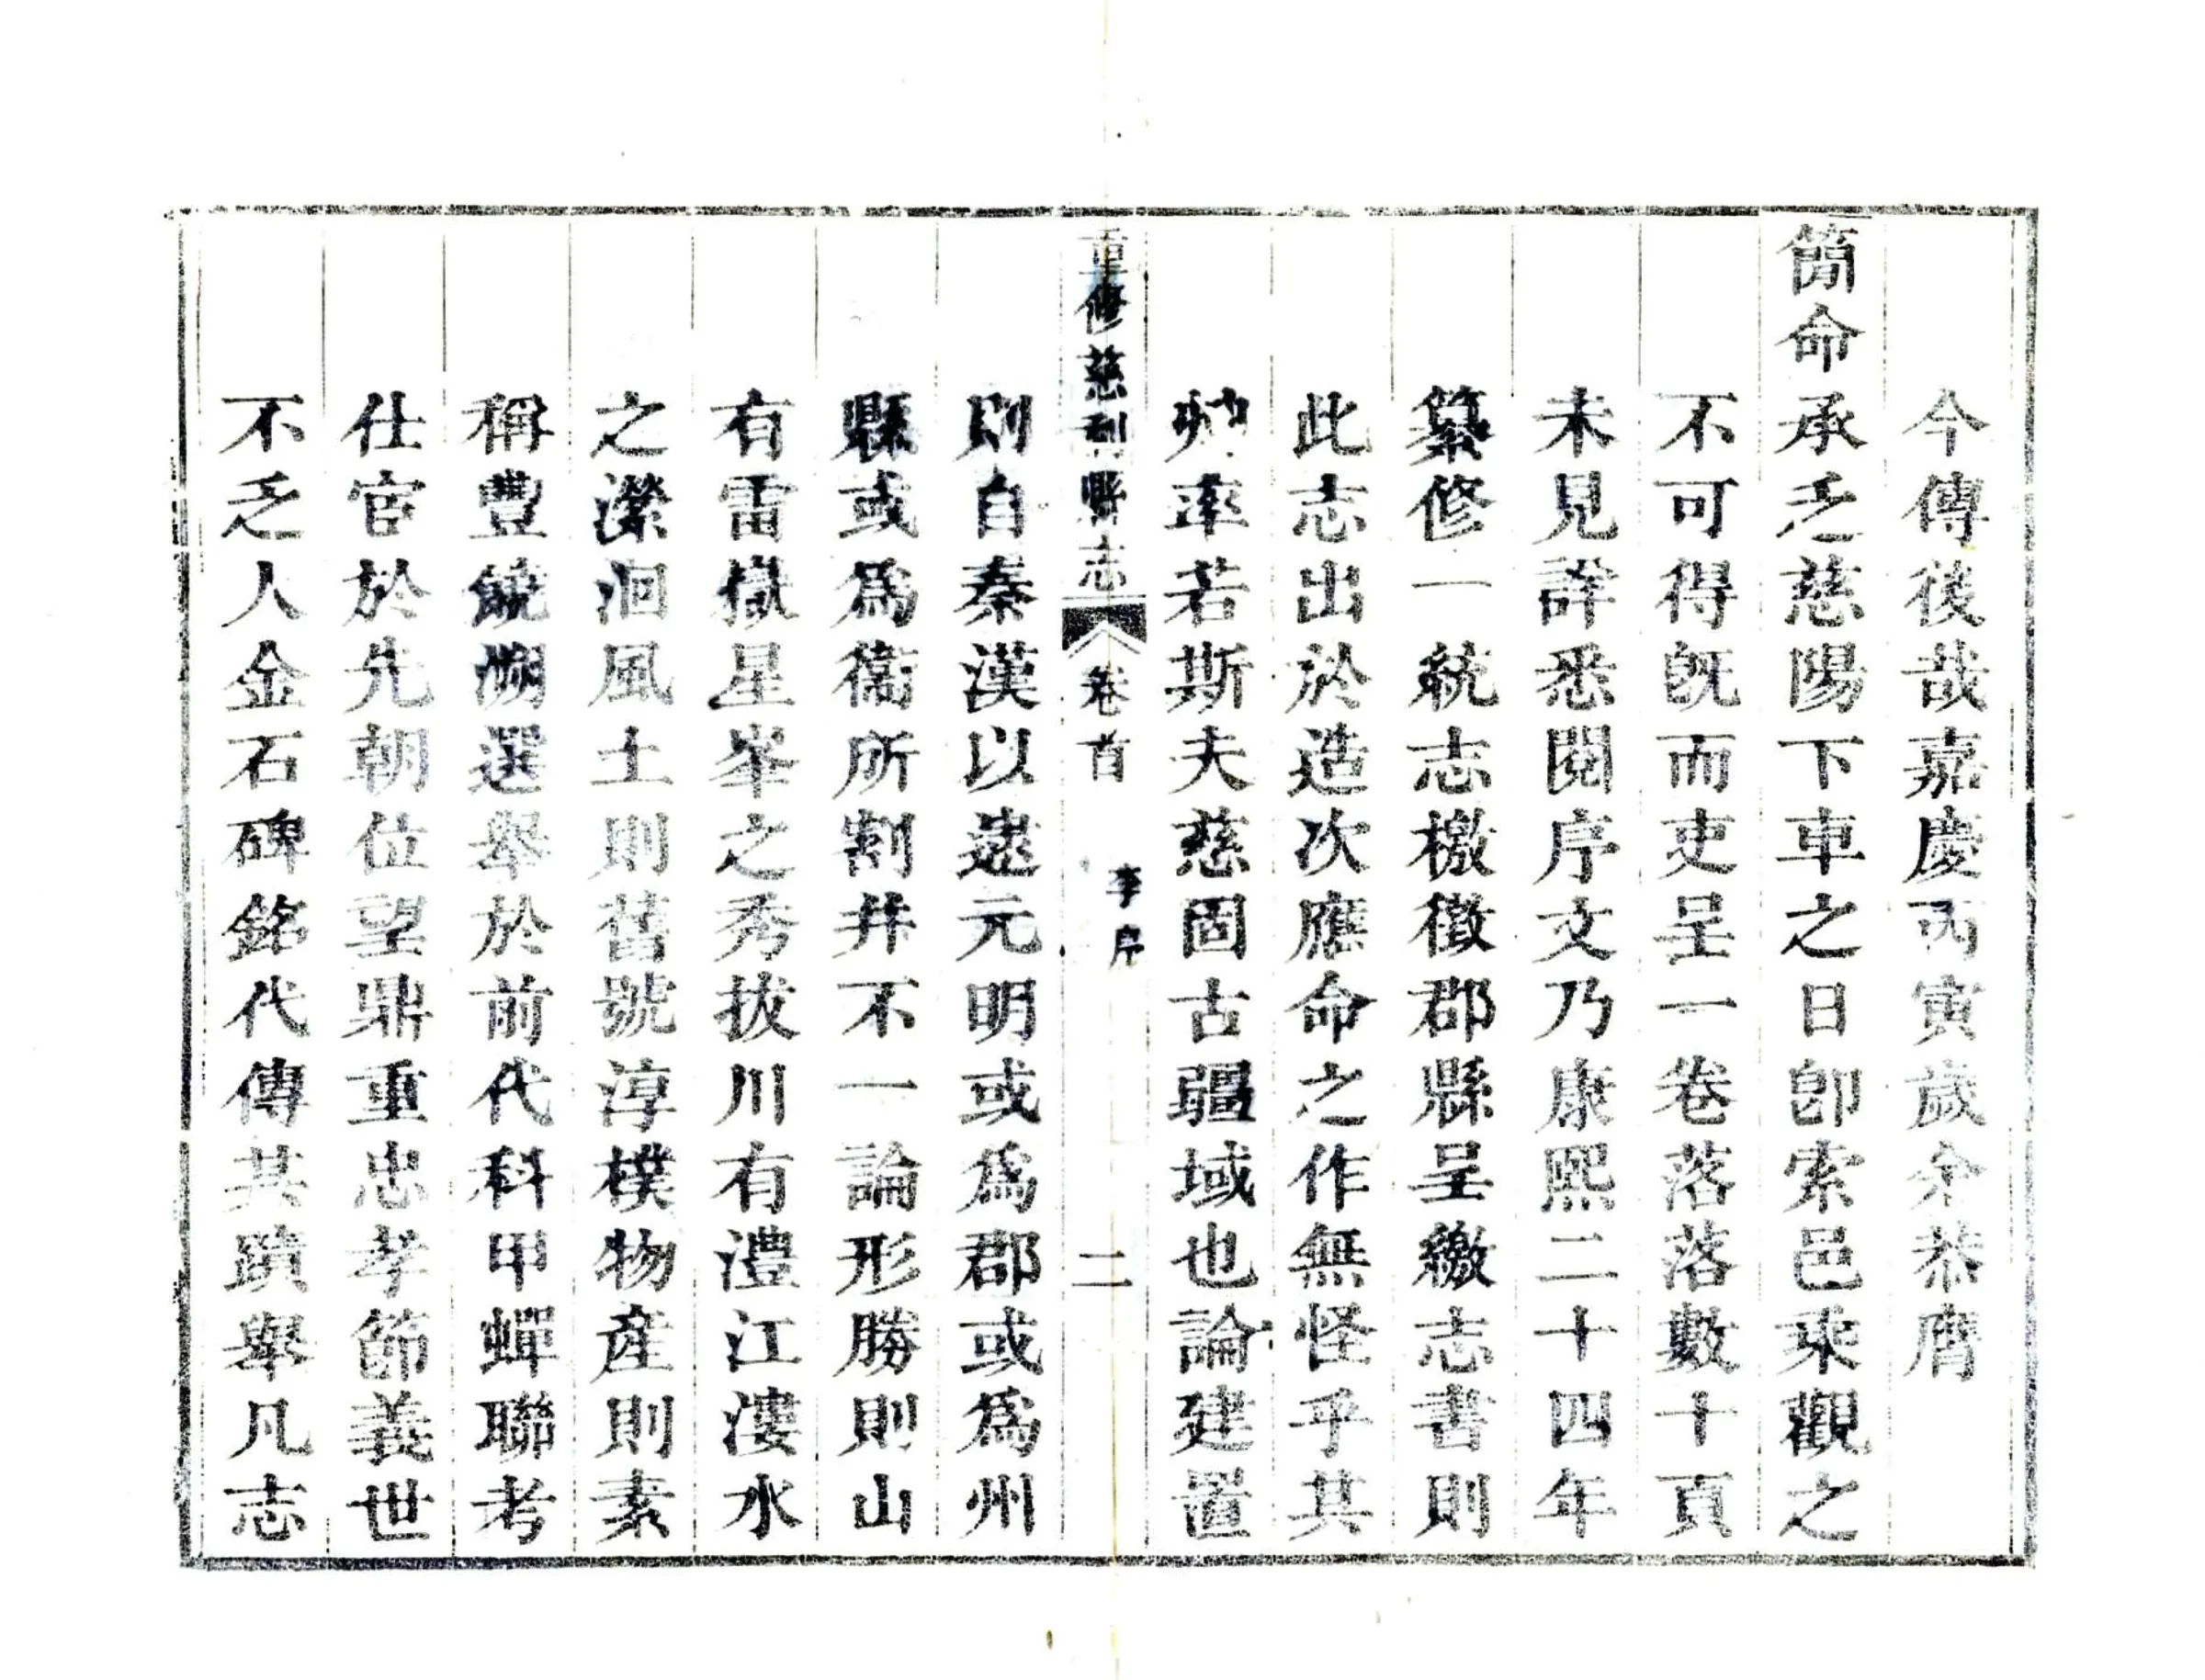 今傳後哉嘉慶丙寅歲余恭膺
簡命承乏慈陽下車之日卽索邑乘觀之
不可得旣而吏呈一卷落落數十頁
未見詳悉閱序文乃康熙二十四年
纂修一統志檄徵郡縣呈繳志書則
此志出於造次應命之作無怪乎其
率若斯夫慈固古疆域也論建置
重修慈利縣志 卷首 李序 二
則自秦漢以逮元明或爲郡或爲州
縣或爲衞所割幷不一論形勝則山
有雷嶽星峯之秀拔川有澧江漊水
之瀠洄風土則舊號淳樸物產則素
稱豐饒溯選舉於前代科甲蟬聯考
仕宦於先朝位望鼎重忠孝節義世
不乏人金石碑銘代傳其蹟舉凡志